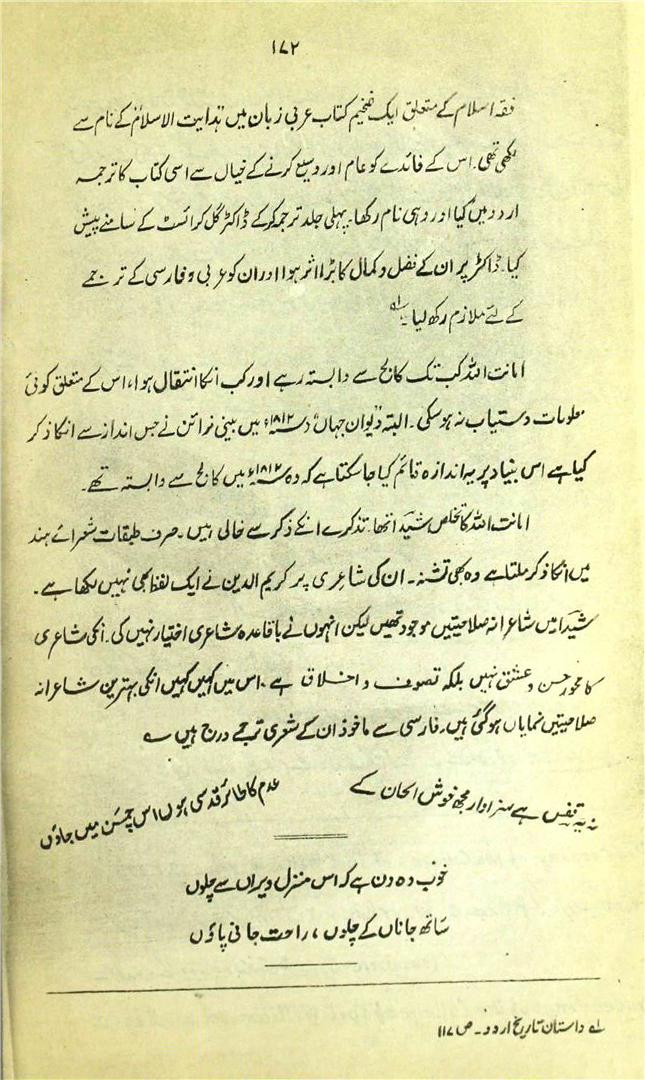 ۱۷۲
فقہ اسلام کے متعلق ایک ضخیم کتاب عربی زبان میں ہدایت الاسلام کے نام سے
لکھی تھی۔ اس کے فائدے کو عام اور وسیع کرنے کے خیال سے اسی کتاب کا ترجمہ
اردو میں کیا اور وہی نام رکھا۔ پہلی جلد ترجمہ کر کے ڈاکٹر گل کرائسٹ کے سامنے پیش
کیا۔ ڈاکٹر پر ان کے فضل و کمال کا بڑا اثر ہوا اور ان کو عربی و فارسی کے ترجمے
کے لئے ملازم رکھ لیا۔ لہ
امانت اللہ کب تک کالج سے وابستہ رہے اور کب انکا انتقال ہوا، اس کے متعلق کوئی
معلومات دستیاب نہ ہو سکی۔ البتہ "دیوان جہاں" ۱۸۱۲ء میں بینی نرائن نے جس انداز سے انکا ذکر
کیا ہے اس بنیاد پر یہ اندازہ قائم کیا جا سکتا ہے کہ وہ ۱۸۱۲ء میں کالج سے وابستہ تھے۔
امانت اللہ کا تخلص شیدا تھا۔ تذکرے انکے ذکر سے خالی ہیں۔ صرف طبقات شعرائے ہند
میں انکا ذکر ملتا ہے وہ بھی تشنہ۔ ان کی شاعری پر کریم الدین نے ایک لفظ بھی نہیں لکھا ہے۔
شیدا میں شاعرانہ صلاحیتیں موجود تھیں لیکن انہوں نے باقاعدہ شاعری اختیار نہیں کی۔ انکی شاعری
کا محور حسن و عشق نہیں بلکہ تصوف و اخلاق ہے۔ اس میں کہیں کہیں انکی بہترین شاعرانہ
صلاحیتیں نمایاں ہو گئی ہیں۔ فارسی سے ماخوذ ان کے شعری ترجمے درج ہیں ؎
نہ یہ قفس ہے سزاوار مجھ خوش الحان کے عدم کا طائر قدسی ہوں اس چمن میں جاؤں
خوب وہ دن ہے کہ اس منزل ویراں سے چلوں
ساتھ جاناں کے چلوں، راحت جانی پاؤں
لے داستان تاریخ اردو۔ ص ۱۱۷